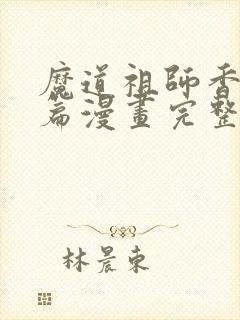 魔道祖師香
篇漫畫完整
林晨東